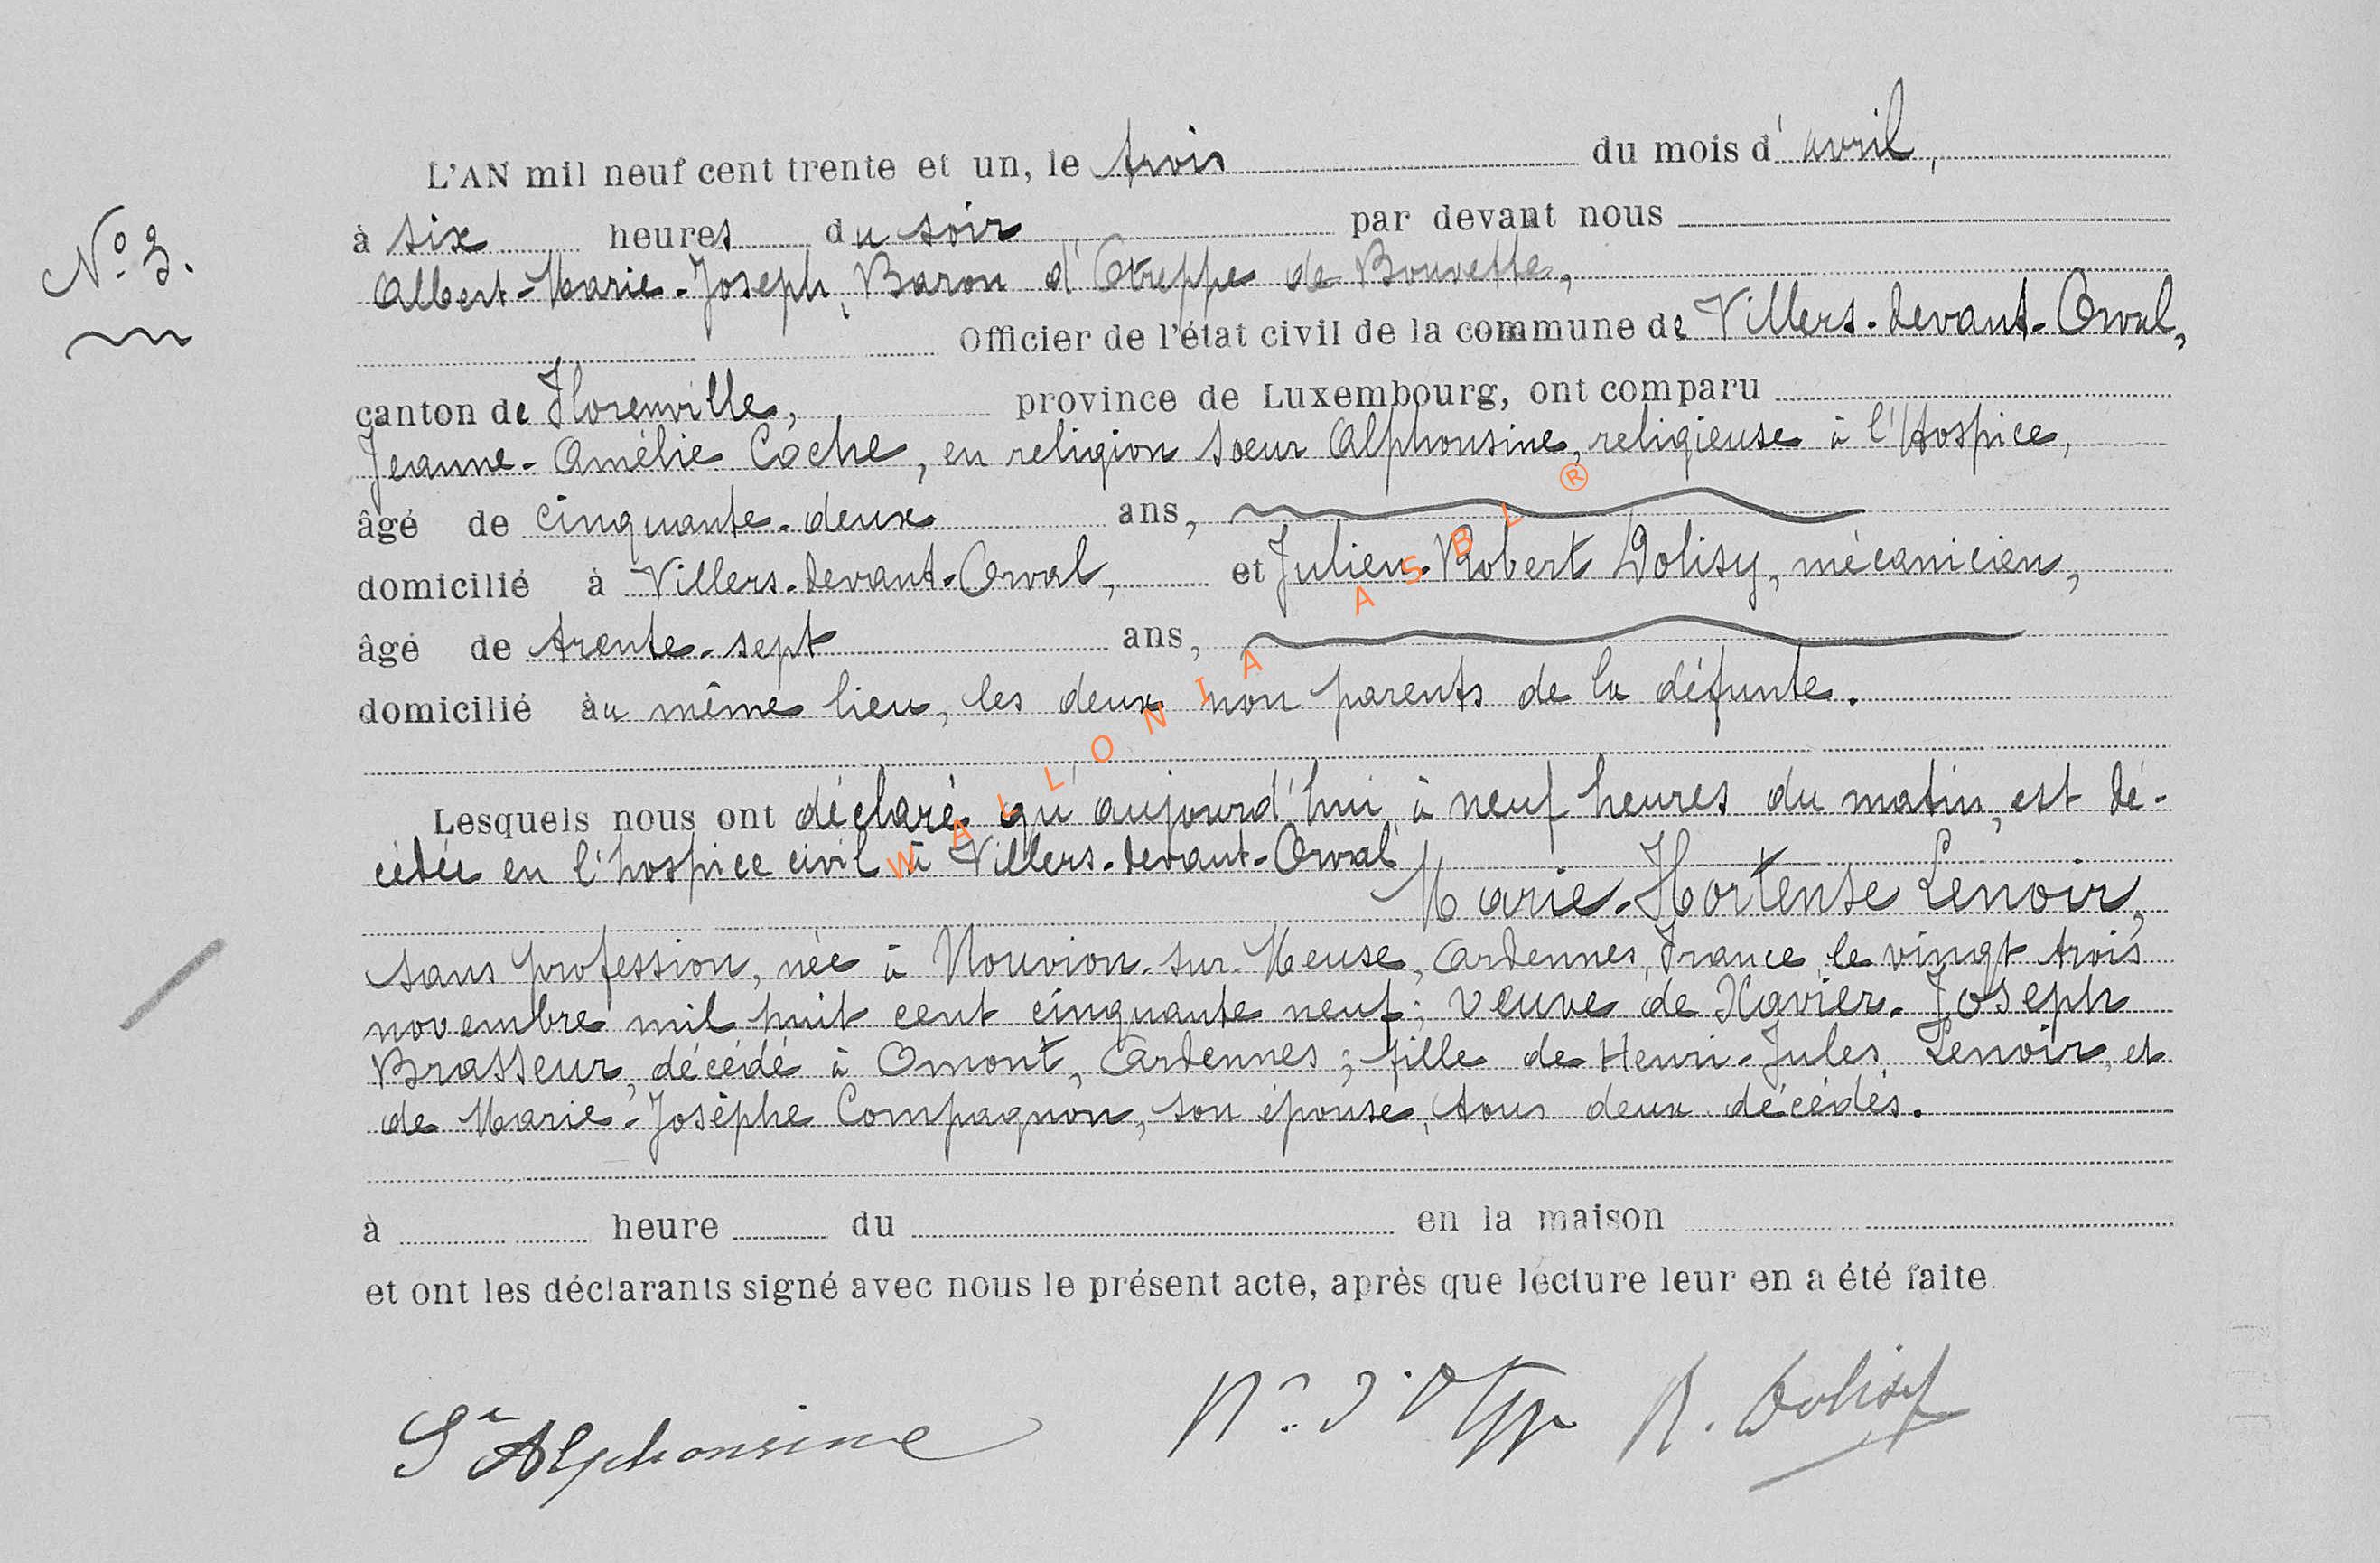 L'AN mil neuf cent trente et un, le trois du mois d'avril,
N° 3.
à six heures du soir par devant nous
Albert-Marie-Joseph, Baron d'Otreppe de Bouvette,
Officier de l'état civil de la commune de Villers-devant-Orval,
canton de Florenville, province de Luxembourg, ont comparu
Jeanne-Amélie Coche, en religion soeur Alphonsine, religieuse à l'Hospice,
âgé de cinquante-deux ans,
domicilié à Villers-devant-Orval, et Julien-Robert Dolisy, mécanicien,
âgé de trente-sept ans,
domicilié au même lieu, les deux non parents de la défunte.
Lesquels nous ont déclaré qu'aujourd'hui à neuf heures du matin, est dé-
cédée en l'hospice civil à Villers-devant-Orval
Marie-Hortense Lenoir,
sans profession, née à Nouvion-sur-Meuse, Ardennes, France, le vingt trois
novembre mil huit cent cinquante neuf; veuve de Xavier-Joseph
Brasseur, décédé à Omont, Ardennes; fille de Henri-Jules Lenoir, et
de Marie-Josèphe Compagnon, son épouse, tous deux décédés.
à heure du en la maison
et ont les déclarants signé avec nous le présent acte, après que lecture leur en a été faite.
Sr Alphonsine R. Dolisy
WALLONIA ASBL ®